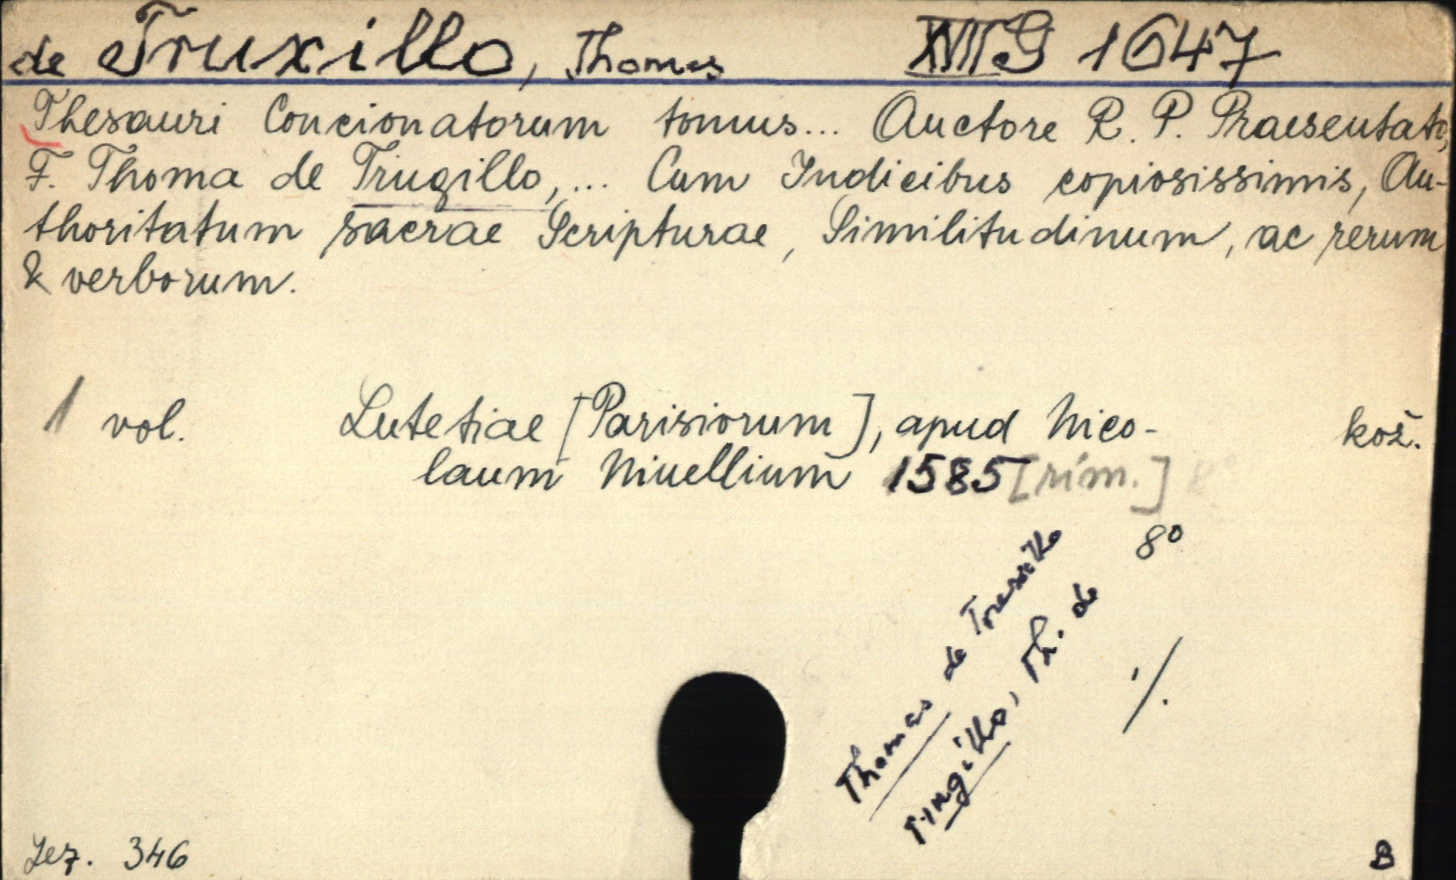 de Truxillo, Thomas XVII G 1647
Thesauri Concionatorum tomus... Auctore R. P. Praesentato,
F. Thoma de Trugillo,... Cum Indicibus copiosissimis, Au-
thoritatum sacrae Scripturae, Similitudinum, ac rerum
& verborum.
1 vol. Lutetiae [Parisiorum], apud Nico- kož.
laum Nivellium 1585 [rím.]
8°
Thomas de Truxillo
Trugillo, Th. de
·/.
Jez. 346 B